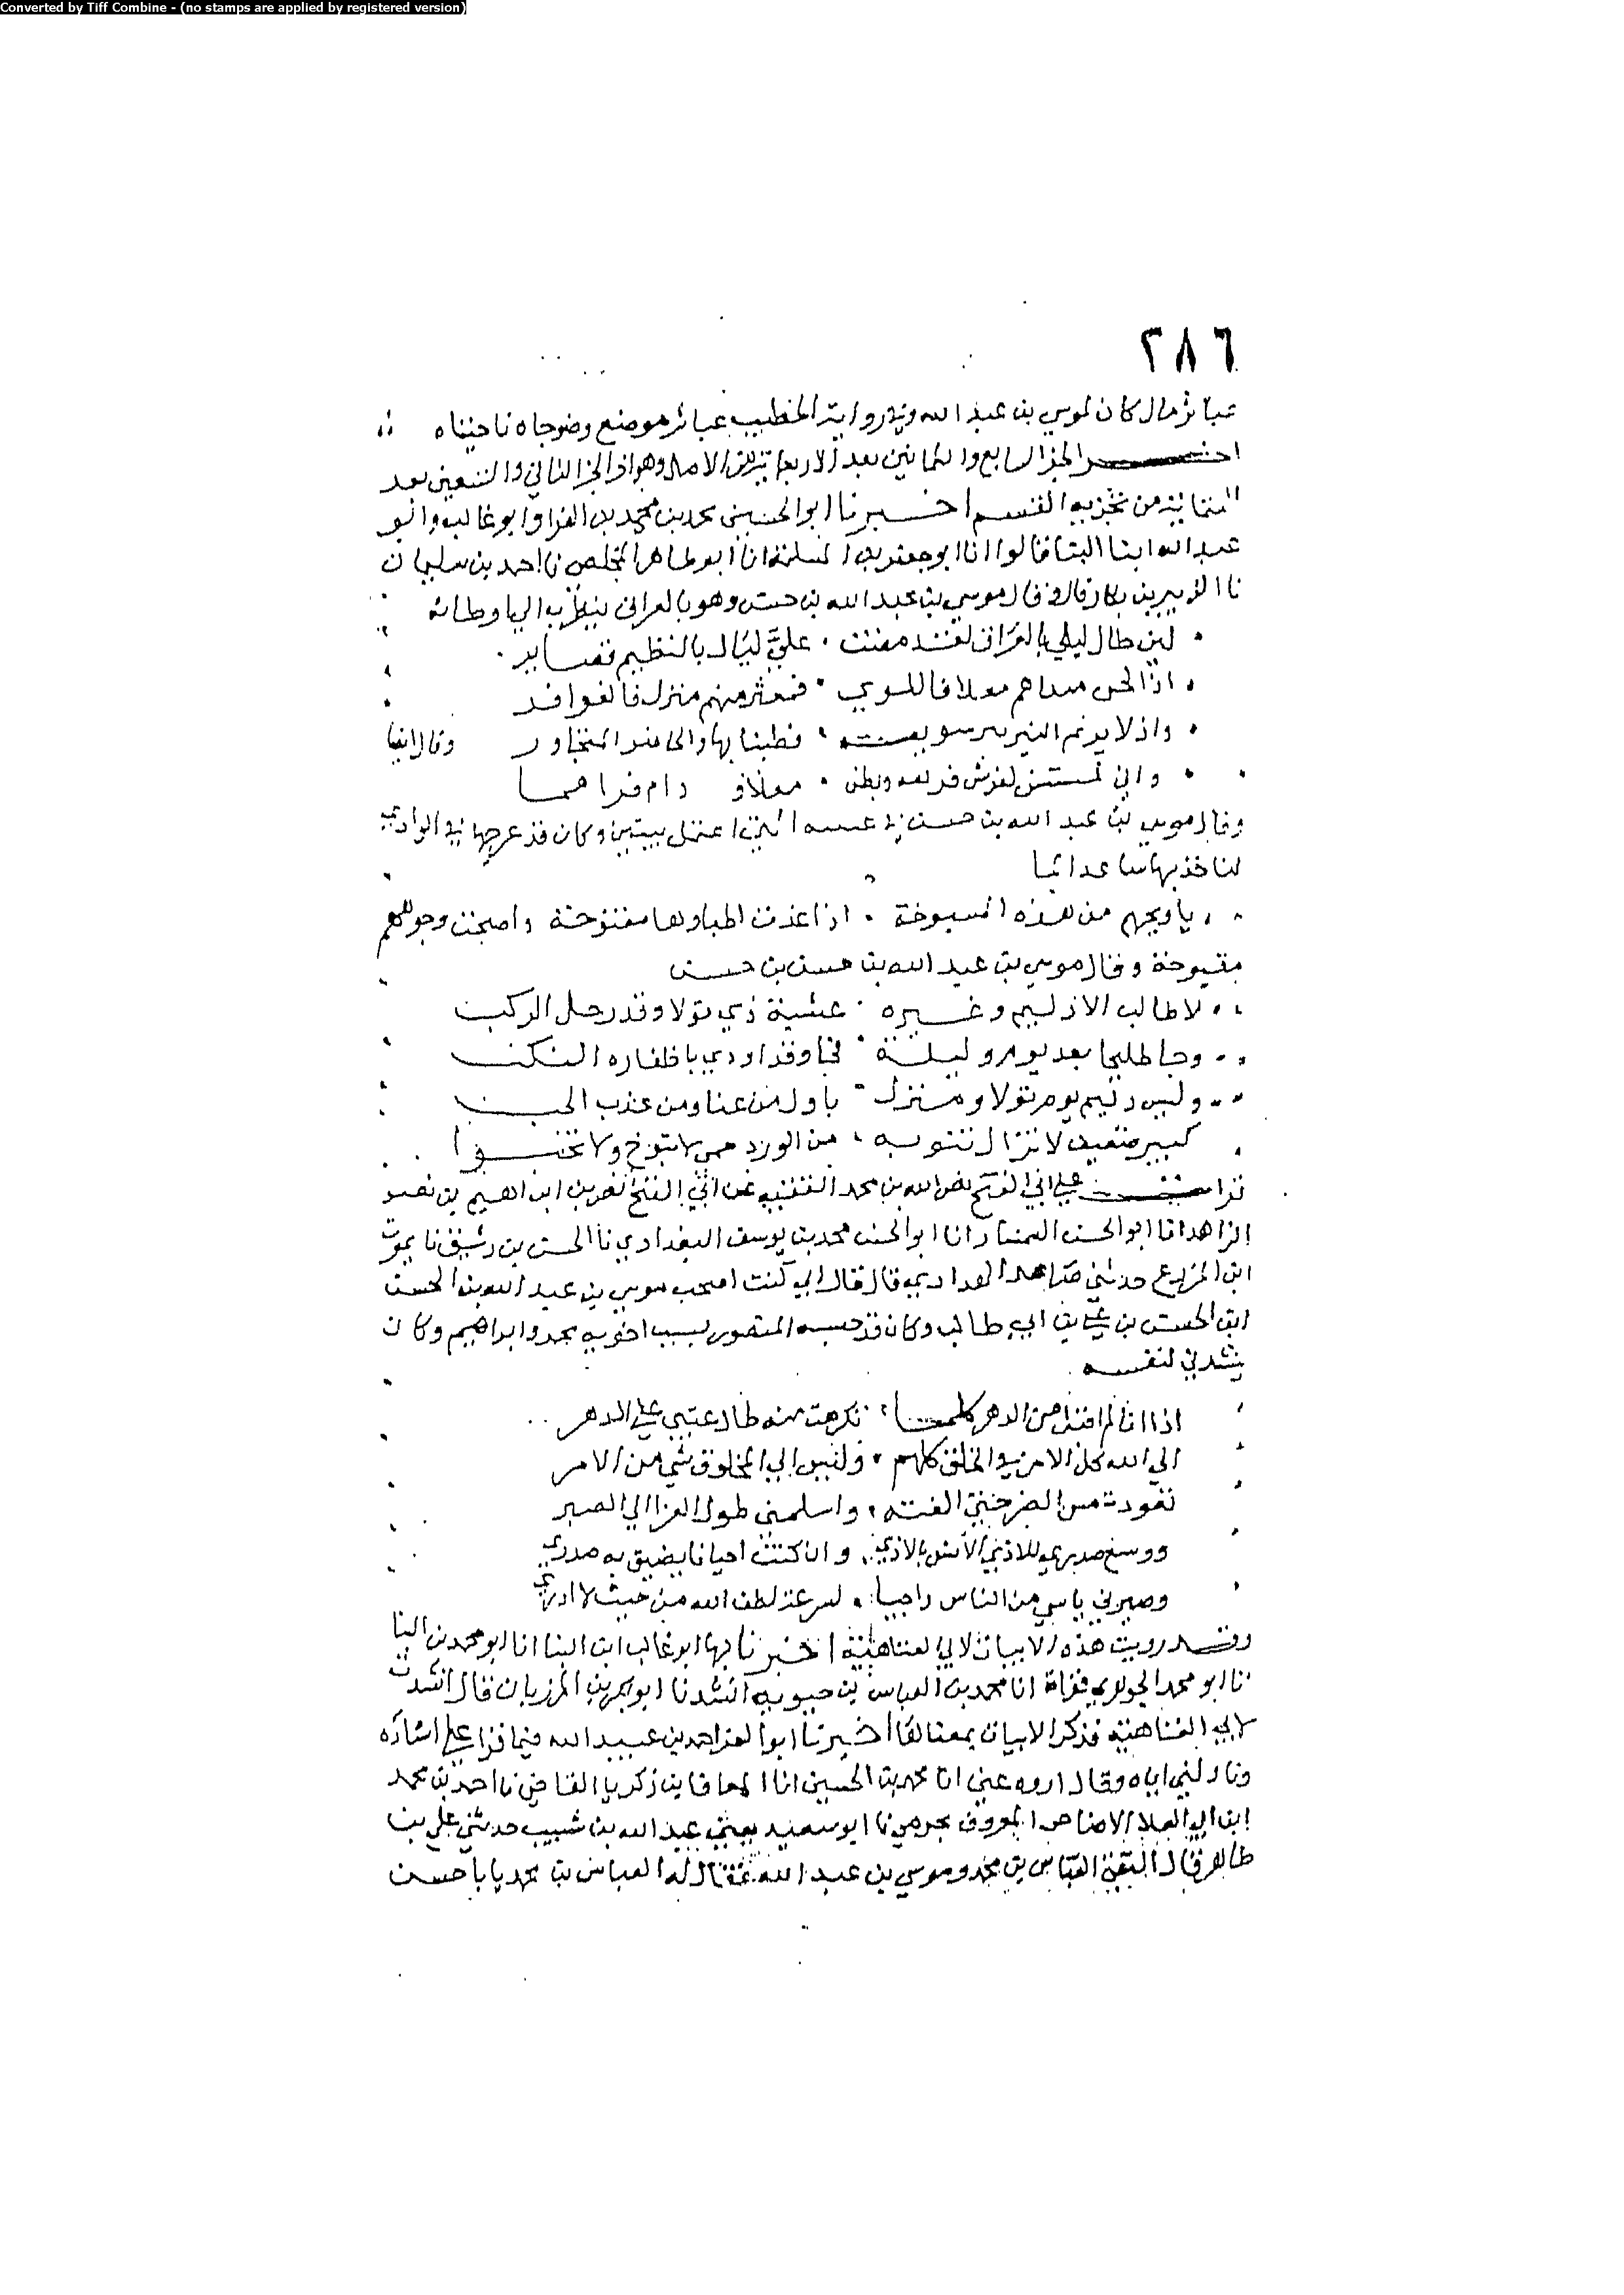 Converted by Tiff Combine - (no stamps are applied by registered version)
٢٨٦
عباثر مال كان لموسي بن عبد الله وفي رواية الخطيب عباثر موضع وضوجاه ناحيتاه
اخر الجز السابع والثمانين بعد الاربعمائة من الاصل وهو اخر الجز الثاني والتسعين بعد
الثمانية من تجزيه القسم اخبرنا ابو الحسين محمد بن محمد بن الفرا وابو غالب وابو
عبد الله ابنا البنا قالوا انا ابو جعفر بن المسلمة انا ابو طاهر المخلص نا احمد بن سليمان
نا الزبير بن بكار قال وقال موسي بن عبد الله بن حسن وهو بالعراق الي اوطانه
لين طال ليلي بالعراق لقد مضت علي ليال بالنظيم قصاير
اذا الحي منهم منزل فالقوافد
واذ لا يريم البير بير سويقة قطينا بها والحاضر المتجاور وقال ايضا
وان
وقال موسي بن عبد الله بن حسن في التي وكان قد عرجها في الوادي
لناخذ بها
يا ويحهم من هذه المسبوخة اذا غدت اطباوها مفتوحة واصبحت وجوههم
مقبوحة وقال موسي بن عبد الله بن حسن بن حسن
لا طالب الازليم وغيره عشية ذي تولا وقد رحل الركب
وجا طليحا بعد يوم وليلة فجا وقد اودي باظفاره النكب
وليس رليم يوم تولا ومنزل باول من عنا ومن عذب الحب
كبير ضعيف لا تزال تنوبه من الورد حمي لا تبوخ ولا تخبوا
قرات علي ابي الفتح نصر الله بن محمد الفقيه عن ابي الفتح نصر بن ابراهيم بن نصر
الزاهد انا ابو الحسن السمسار انا ابو الحسن محمد بن يوسف البغدادي نا الحسن بن رشيق نا يموت
ابن المزرع حدثني قال قال ابي كنت اصحب موسي بن عبد الله بن الحسن
ابن الحسن بن علي بن ابي طالب وكان قد حبسه المنصور بسبب اخويه محمد وابراهيم وكان
ينشدني لنفسه
اذا انا لم اقبل من الدهر كلما تكرهت منه طال عتبي علي الدهر
الي الله كل الامر في الخلق كلهم وليس الي المخلوق شي من الامر
تعودت مس الضر حتي الفته واسلمني طول العزا الي الصبر
ووسع صدري للاذي الانس بالاذي وان كنت احيانا يضيق به صدري
وصيرني ياسي من الناس راجيا لسرعة لطف الله من حيث لا ادري
وقد رويت هذه الابيات لابي العتاهية اخبرنا بها ابو غالب ابن البنا انا ابو محمد بن البنا
نا ابو محمد الجوهري قراة انا محمد بن العباس بن حيويه انشدنا ابو بكر بن المرزبان قال انشدت
لابي العتاهية فذكر الابيات بمعناها اخبرنا ابو العز احمد بن عبيد الله فيما قرا علي اسناده
وناولني اياه وقال اروه عني انا محمد بن الحسين انا المعافا بن زكريا القاضي نا احمد بن محمد
ابن ابي العلا الاضاخي المعروف بحرمي نا ابو سعيد يعني عبد الله بن شبيب حدثني علي بن
طاهر قال التقي العباس بن محمد وموسي بن عبد الله فقال له العباس بن محمد يابا حسن